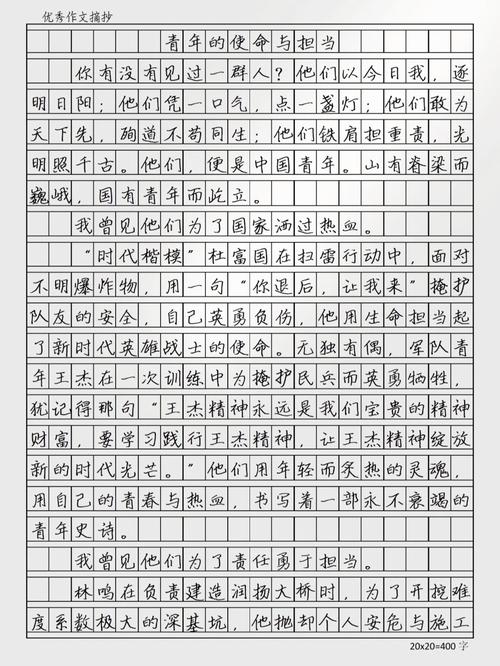 优秀作文摘抄
青年的使命与担当
你有没有见过一群人？他们以今日我，逐
明日阳；他们凭一口气，点一盏灯；他们敢为
天下先，殉道不苟同生；他们铁肩担重责，光
明照千古。他们，便是中国青年。山有脊梁而
巍峨，国有青年而屹立。
我曾见他们为了国家洒过热血。
“时代楷模”杜富国在扫雷行动中，面对
不明爆炸物，用一句“你退后，让我来”掩护
队友的安全，自己英勇负伤，他用生命担当起
了新时代英雄战士的使命。无独有偶，军队青
年王杰在一次训练中为掩护民兵而英勇牺牲，
犹记得那句“王杰精神永远是我们宝贵的精神
财富，要学习践行王杰精神，让王杰精神绽放
新的时代光芒。”他们用年轻而炙热的灵魂，
用自己的青春与热血，书写着一部永不衰竭的
青年史诗。
我曾见他们为了责任勇于担当。
林鸣在负责建造润扬大桥时，为了开挖难
度系数极大的深基坑，他抛却个人安危与施工
20x20=400 字